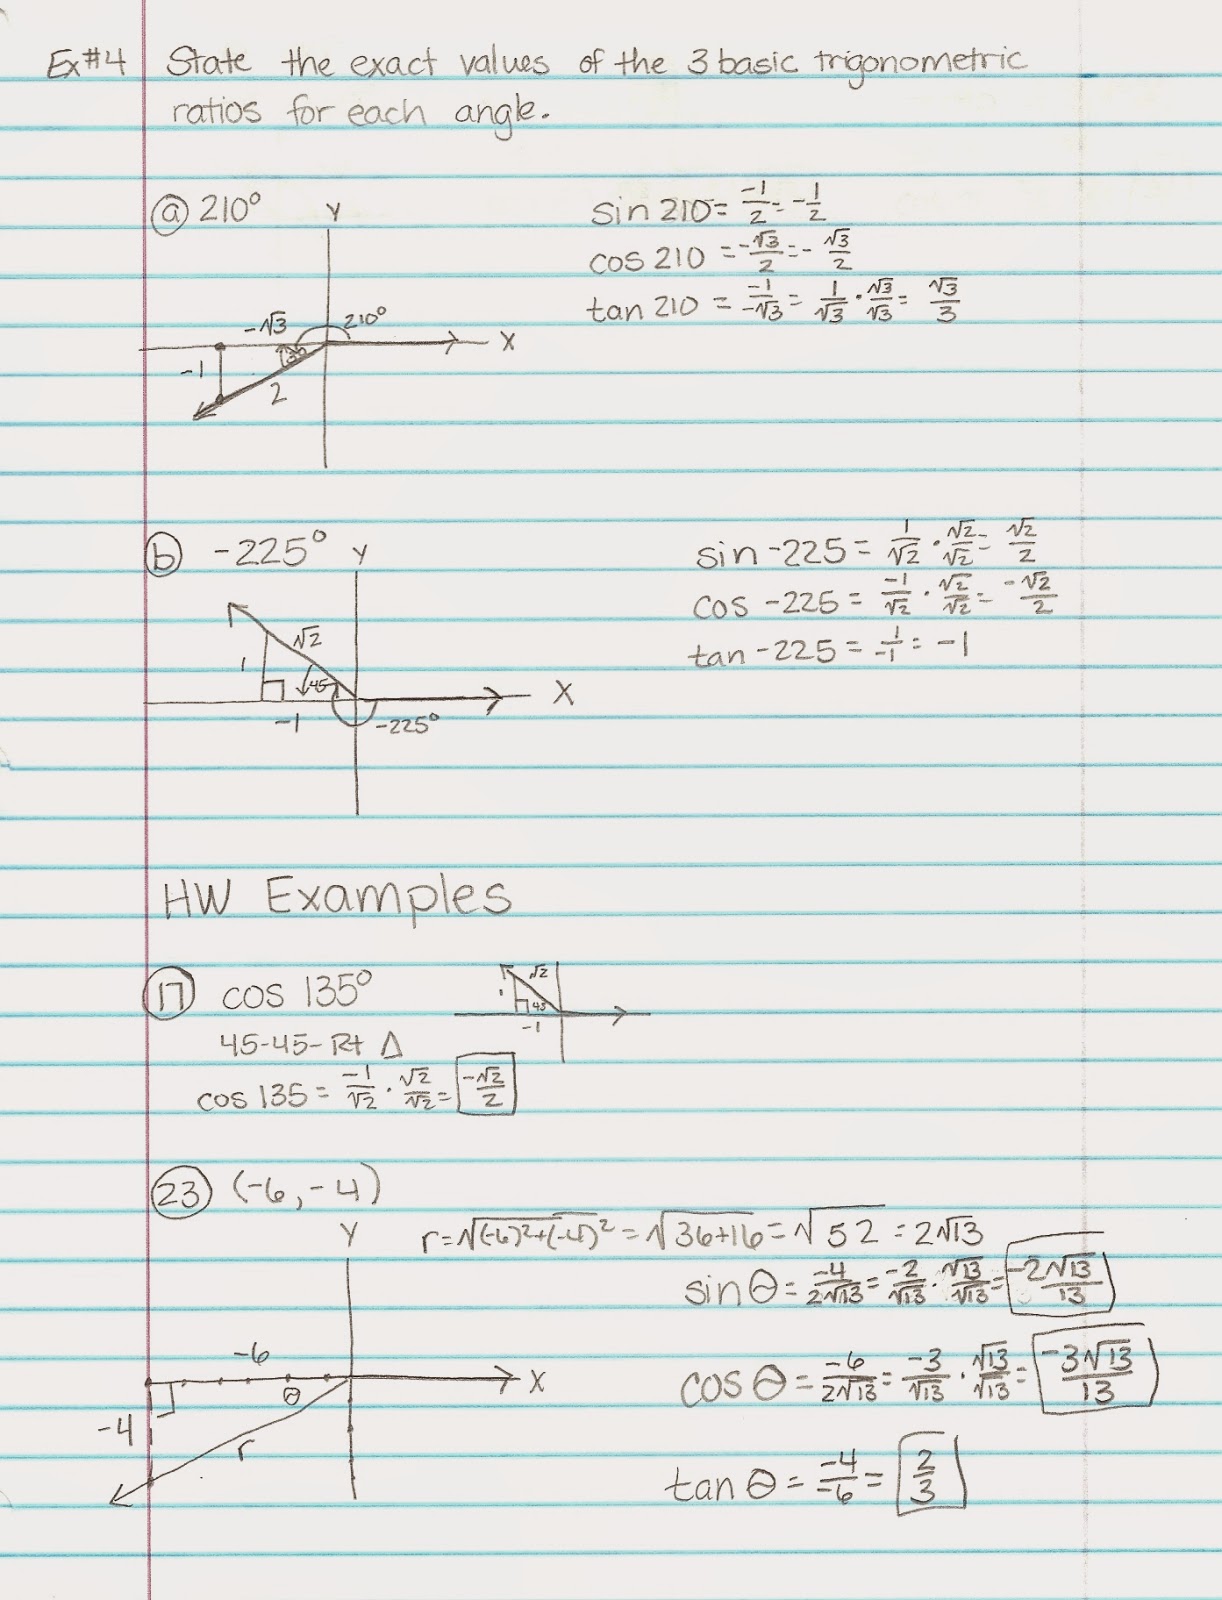 Ex#4 State the exact values of the 3 basic trigonometric
ratios for each angle.
ⓐ 210°
sin 210 = -1/2 = -1/2
cos 210 = -√3/2 = -√3/2
tan 210 = -1/-√3 = 1/√3 · √3/√3 = √3/3
Y
-√3 210°
X
-1
30
2
ⓑ -225°
sin -225 = 1/√2 · √2/√2 = √2/2
cos -225 = -1/√2 · √2/√2 = -√2/2
tan -225 = 1/-1 = -1
Y
√2
1
45
X
-1
-225°
HW Examples
⑰ cos 135°
√2
1
45
-1
45-45-Rt Δ
cos 135 = -1/√2 · √2/√2 = -√2/2
㉓ (-6, -4)
r = √(-6)²+(-4)² = √36+16 = √52 = 2√13
sin θ = -4/2√13 = -2/√13 · √13/√13 = -2√13/13
cos θ = -6/2√13 = -3/√13 · √13/√13 = -3√13/13
tan θ = -4/-6 = 2/3
Y
-6
X
θ
-4
r